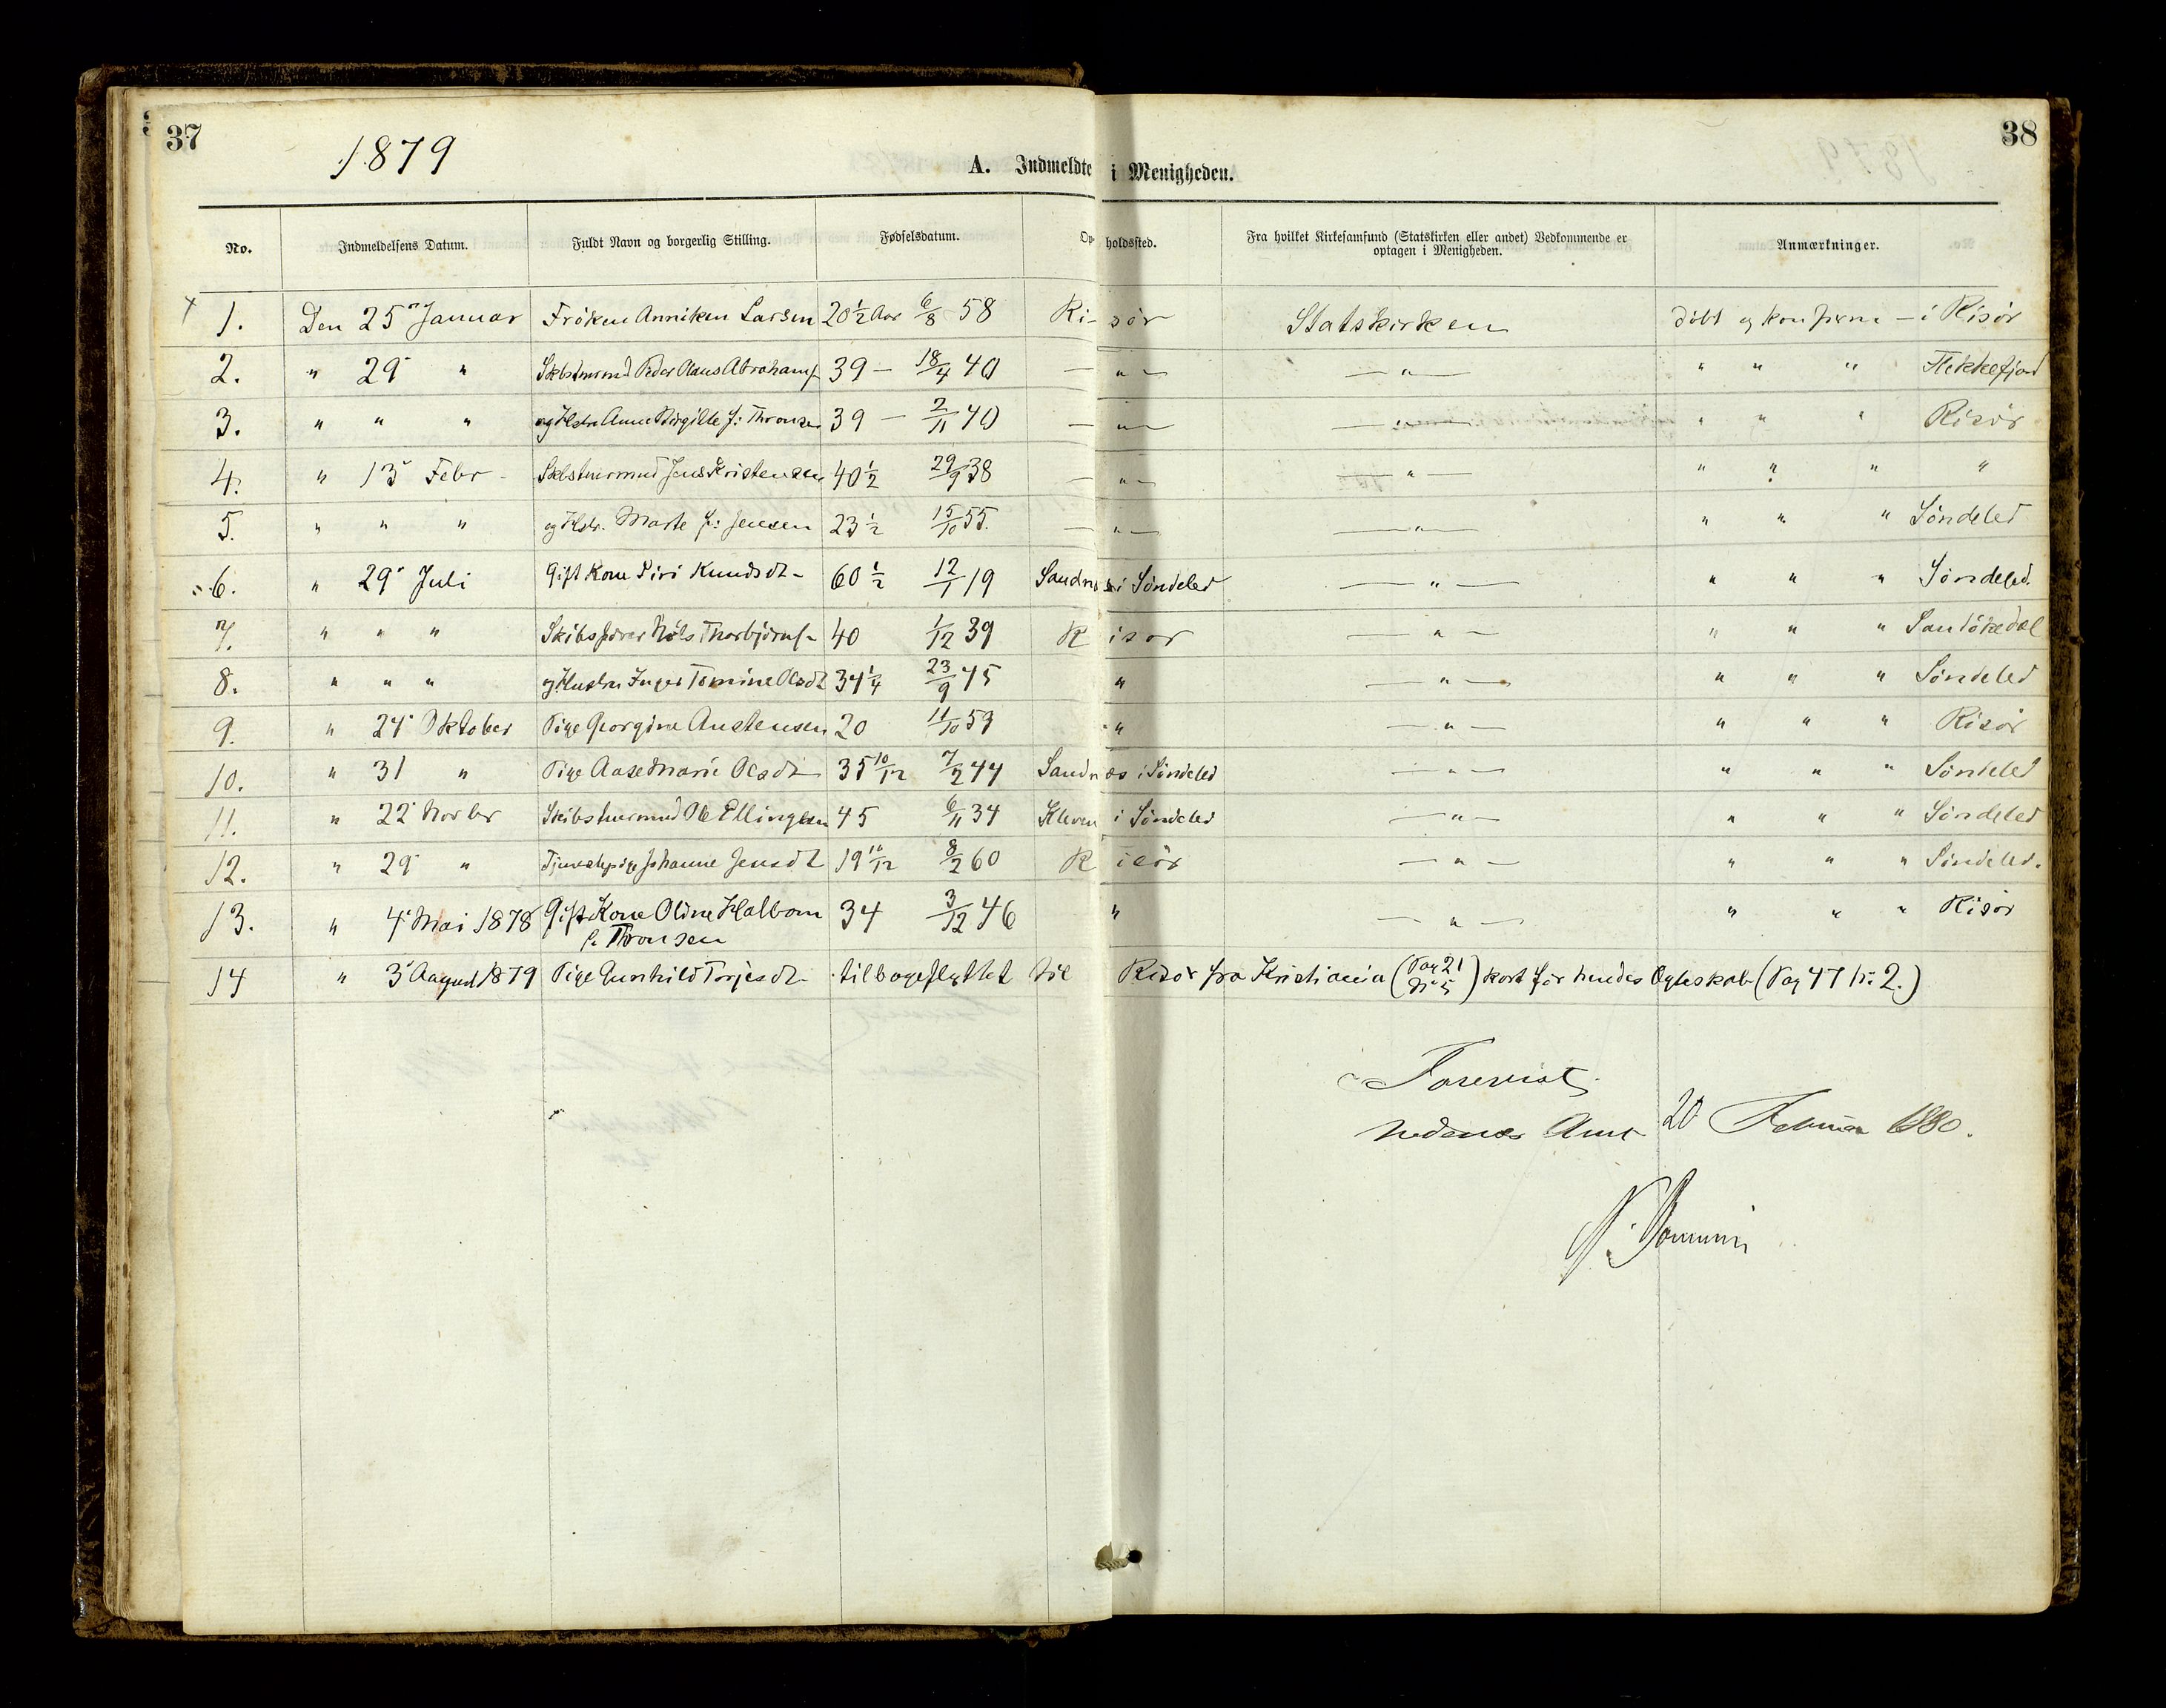 37
38
1879
A. Indmeldte i Menigheden.
No. Indmeldelsens Datum. Fuldt Navn og borgerlig Stilling. Fødselsdatum. Opholdssted. Fra hvilket Kirkesamfund (Statskirken eller andet) Vedkommende er Anmærkninger.
optagen i Menigheden.
1. Den 25 Januar Fröken Anniken Larsen 20 1/2 Aar 6/8 58 Ri-sör Statskirken döbt og konfirm — i Risör
2. " 29 " Skbstmrmd Peder Claus Abrahams 39 — 18/4 40 — " — — " — " " " Flekkefjord
3. " " " og Hstr Anne Birgitte f: Thronsen 39 — 2/11 40 — " — — " — " " " Risör
4. " 13 Febr - Skbstmrmd Jens Kristensen 40 1/2 29/9 38 — " — — " — " " " "
5. " " " og Hstr. Marte f: Jensen 23 1/2 15/10 55. — " — — " — " " " Söndeled
6. " 29 Juli Gift Kone Siri Knudsdt- 60 1/2 12/1 19 Sandnes i Söndeled — " — " " " Söndeled.
7. " " " Skibsförer Nils Thorbjörns- 40 1/12 39 Risör — " — " " " Sanlökedal
8. " " " og Hustru Inger Tomine Olsdt 34 1/4 23/9 45 " — " — " " " Söndeled
9. " 24 Oktober Pige Georgine Austensen 20 11/10 59 " — " — " " " Risör
10. " 31 " Pige Aase Marie Olsdt 35 10/12 7/2 44 Sandnæs i Söndeled — " — " " " Söndeled
11. " 22 Novbr Skibstmrmnd Ole Ellingsen 45 6/11 34 Kleven i Söndeled — " — " " " Söndeled
12. " 29 " Tjenestepige Johanne Jensdt 19 10/12 8/2 60 Risör — " — " " " Söndeled.
13. " 4 Mai 1878 Gift Kone Oline Halbom 34 3/12 46 " — " — " " " Risör
f: Thronsen
14 " 3 August 1879 Pige Gunhild Torjesdt- tilbageflyttet til Risör fra Kristiania (Pag 21 No 5) kort för hendes Egteskab (Pag 47 No 2.)
Forevist
Nedenes Amt 20 Februar 1880.